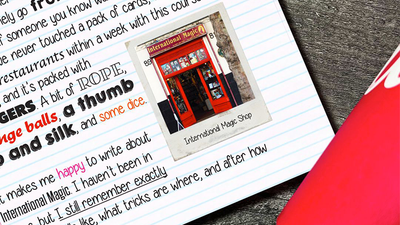 ely go
f someone you know
be never touched a pack of cards,
restaurants within a week with this
and it's packed with
GERS. A bit of ROPE,
nge balls, a thumb
p and silk, and some dice.
International Magic
International Magic Shop
t makes me happy to write about
International Magic. I haven't been in
, but I still remember exactly
like, what tricks are where, and after how